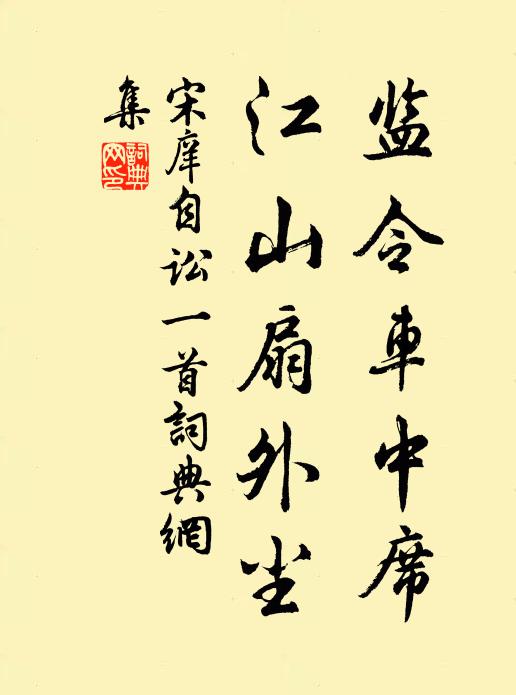 监令車中席
江山扇外尘
宋庠自讼一首詞典網
集
詞典
网印